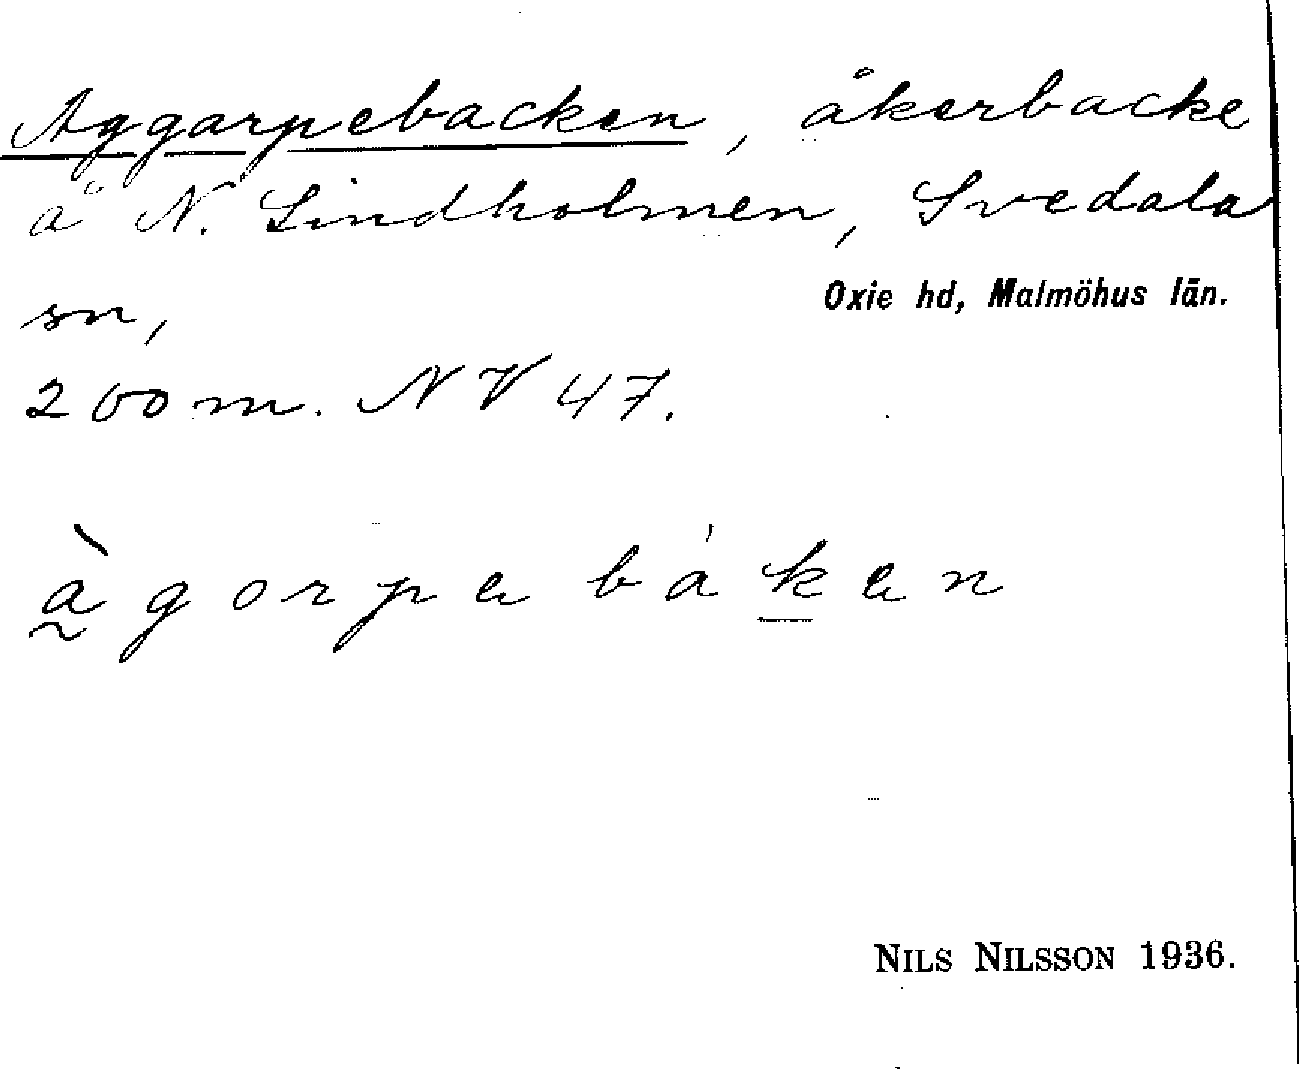 Aggarpebacken, åkerbacke
å N. Lindholmen, Svedala
sn,
Oxie hd, Malmöhus län.
200 m. NV 47.
àgorpe báken
NILS NILSSON 1936.